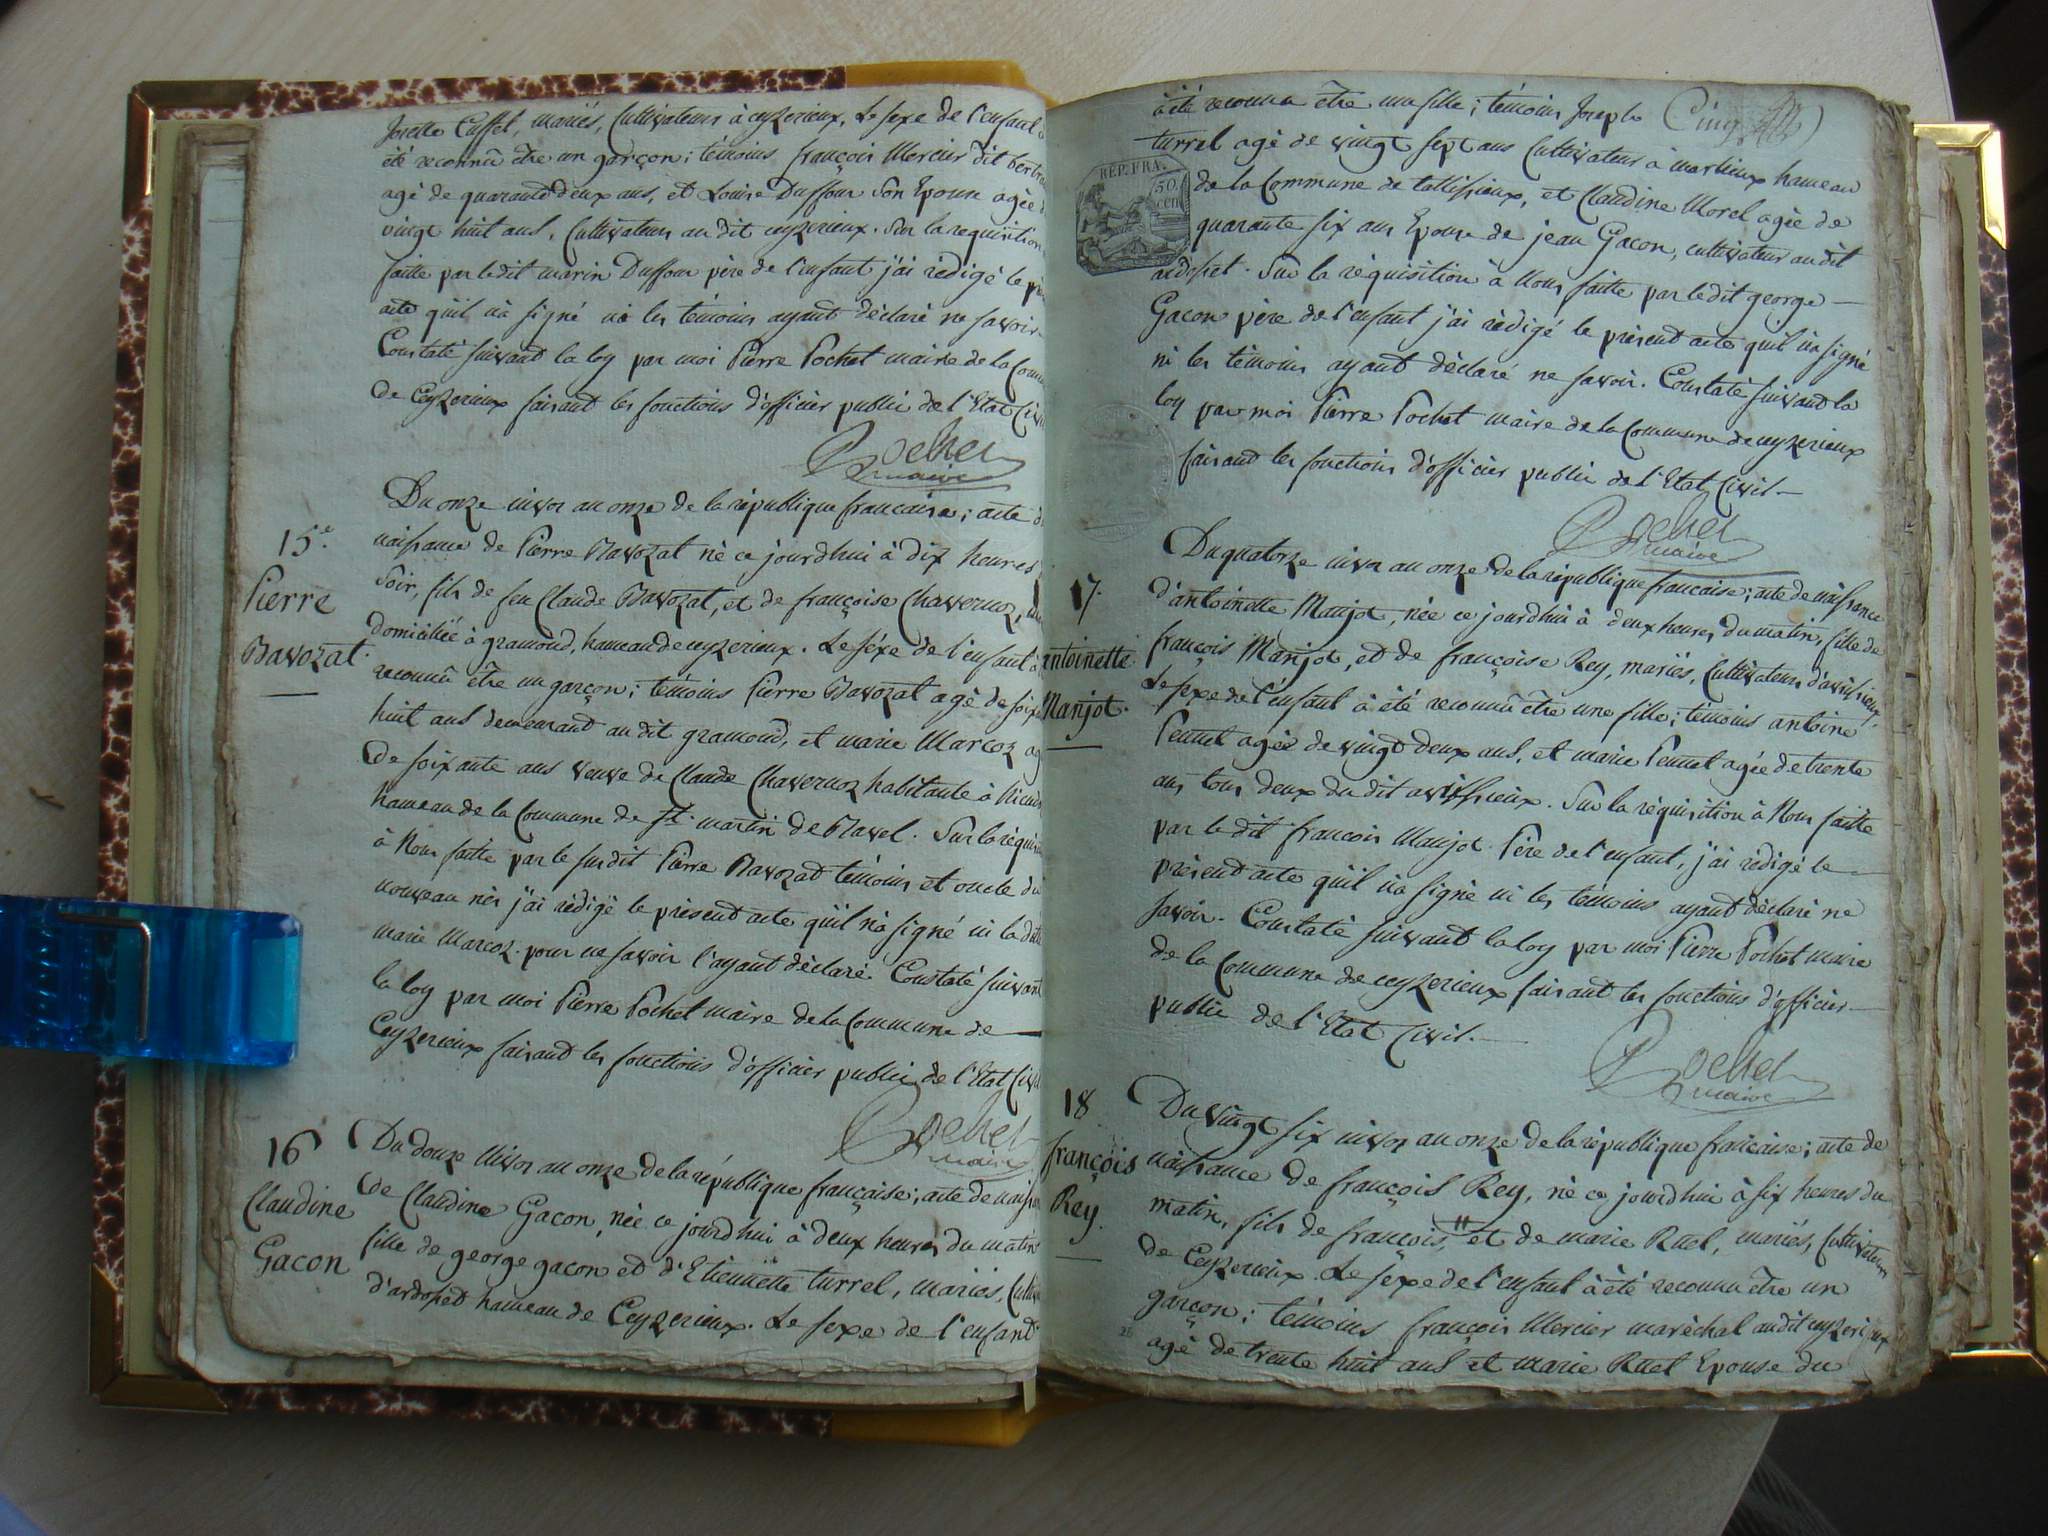 Josette Cuffet, mariés, Cultivateurs à ceyzerieux, Le sexe de l'enfant a
été reconnû être un garçon; témoins françois Mercier dit
agé de quarante deux ans, et Louise Duffour son Epouse agée
vingt huit ans, Cultivateurs au dit ceyzerieux. Sur la requisition
faitte par ledit marin Duffour père de l'enfant j'ai rédigé le
acte qu'il n'a signé ni les témoins ayant déclaré ne savoir.
Constaté suivant la loy par moi Pierre Pochet maire de la
de Ceyzerieux faisant les fonctions d'officier public de l'Etat Civil
Pochet
maire
15e.
Pierre
Bavozat.
Du onze nivoz an onze de la république francaise; acte de
naissance de Pierre Bavozat né ce jourdhui à dix heures
soir, fils de feu Claude Bavozat, et de françoise Chavernoz,
domiciliée à gramond, hameau de ceyzerieux. Le séxe de l'enfant à
reconnû être un garçon; témoins Pierre Bavozat agé de
huit ans demeurant au dit gramond, et marie Marcoz
de soixante ans veuve de Claude Chavernoz habitante à
hameau de la Commune de St. martin de Bavel. Sur la
à Nous faitte par le susdit Pierre Bavozat témoin et oncle du
nouveau née j'ai rédigé le présent acte qu'il n'a signé ni la
marie Marcoz. pour ne savoir l'ayant déclaré. Constaté suivant
la loy par moi Pierre Pochet maire de la Commune de
Ceyzerieux faisant les fonctions d'officier public de l'Etat Civil
Pochet
maire
16
Claudine
Gacon
Du douze Nivoz an onze de la république française; acte de
de Claudine Gacon, née ce jourdhui à deux heures du matin
fille de george gacon et d'Etiennette turrel, mariés,
d'ardosset hameau de Ceyzerieux. Le sexe de l'enfant
à été reconnu être une fille; témoins Joseph
turrel agé de vingt sept ans Cultivateur à marlieux hameau
RÉP. FRA.
50.
cen
de la Commune de tallissieux, et Claudine Morel agée de
quarante six ans Epouse de jean Gacon, cultivateur au dit
ardosset. Sur la réquisition à Nous faitte par ledit george
Gacon père de l'enfant j'ai rédigé le présent acte qu'il n'a signé
ni les témoins ayant déclaré ne savoir. Constaté suivant la
loy par moi Pierre Pochet maire de la Commune de ceyzerieux
faisant les fonctions d'officier public de l'Etat Civil
Pochet
maire
17.
antoinette
Manjot.
Du quatorze nivoz an onze de la république francaise; acte de naissance
d'antoinette Manjot, née ce jourdhui à deux heures du matin, fille de
françois Manjot, et de françoise Rey, mariés, Cultivateurs d'avissieux,
Le sexe de l'enfant à été reconnû être une fille; témoins antoine
Pennet agée de vingt deux ans, et marie Pennet agée de trente
ans tous deux du dit avissieux. Sur la réquisition à Nous faitte
par le dit francois Manjot Père de l'enfant, j'ai rédigé le
présent acte qu'il n'a signé ni les témoins ayant déclaré ne
savoir. Constaté suivant la loy par moi Pierre Pochet maire
de la Commune de ceyzerieux faisant les fonctions d'officier
public de l'Etat Civil.
Pochet
maire
18
françois
Rey.
Du vingt six nivoz an onze de la république francaise; acte de
naissance de françois Rey, né ce jourdhui à six heures du
matin, fils de françois, et de marie Ruel, mariés, Cultivateurs
de Ceyzerieux. Le sexe de l'enfant à été reconnu être un
garçon; témoins françois Mercier maréchal au dit ceyzerieux
agé de trente huit ans et marie Ruel Epouse du